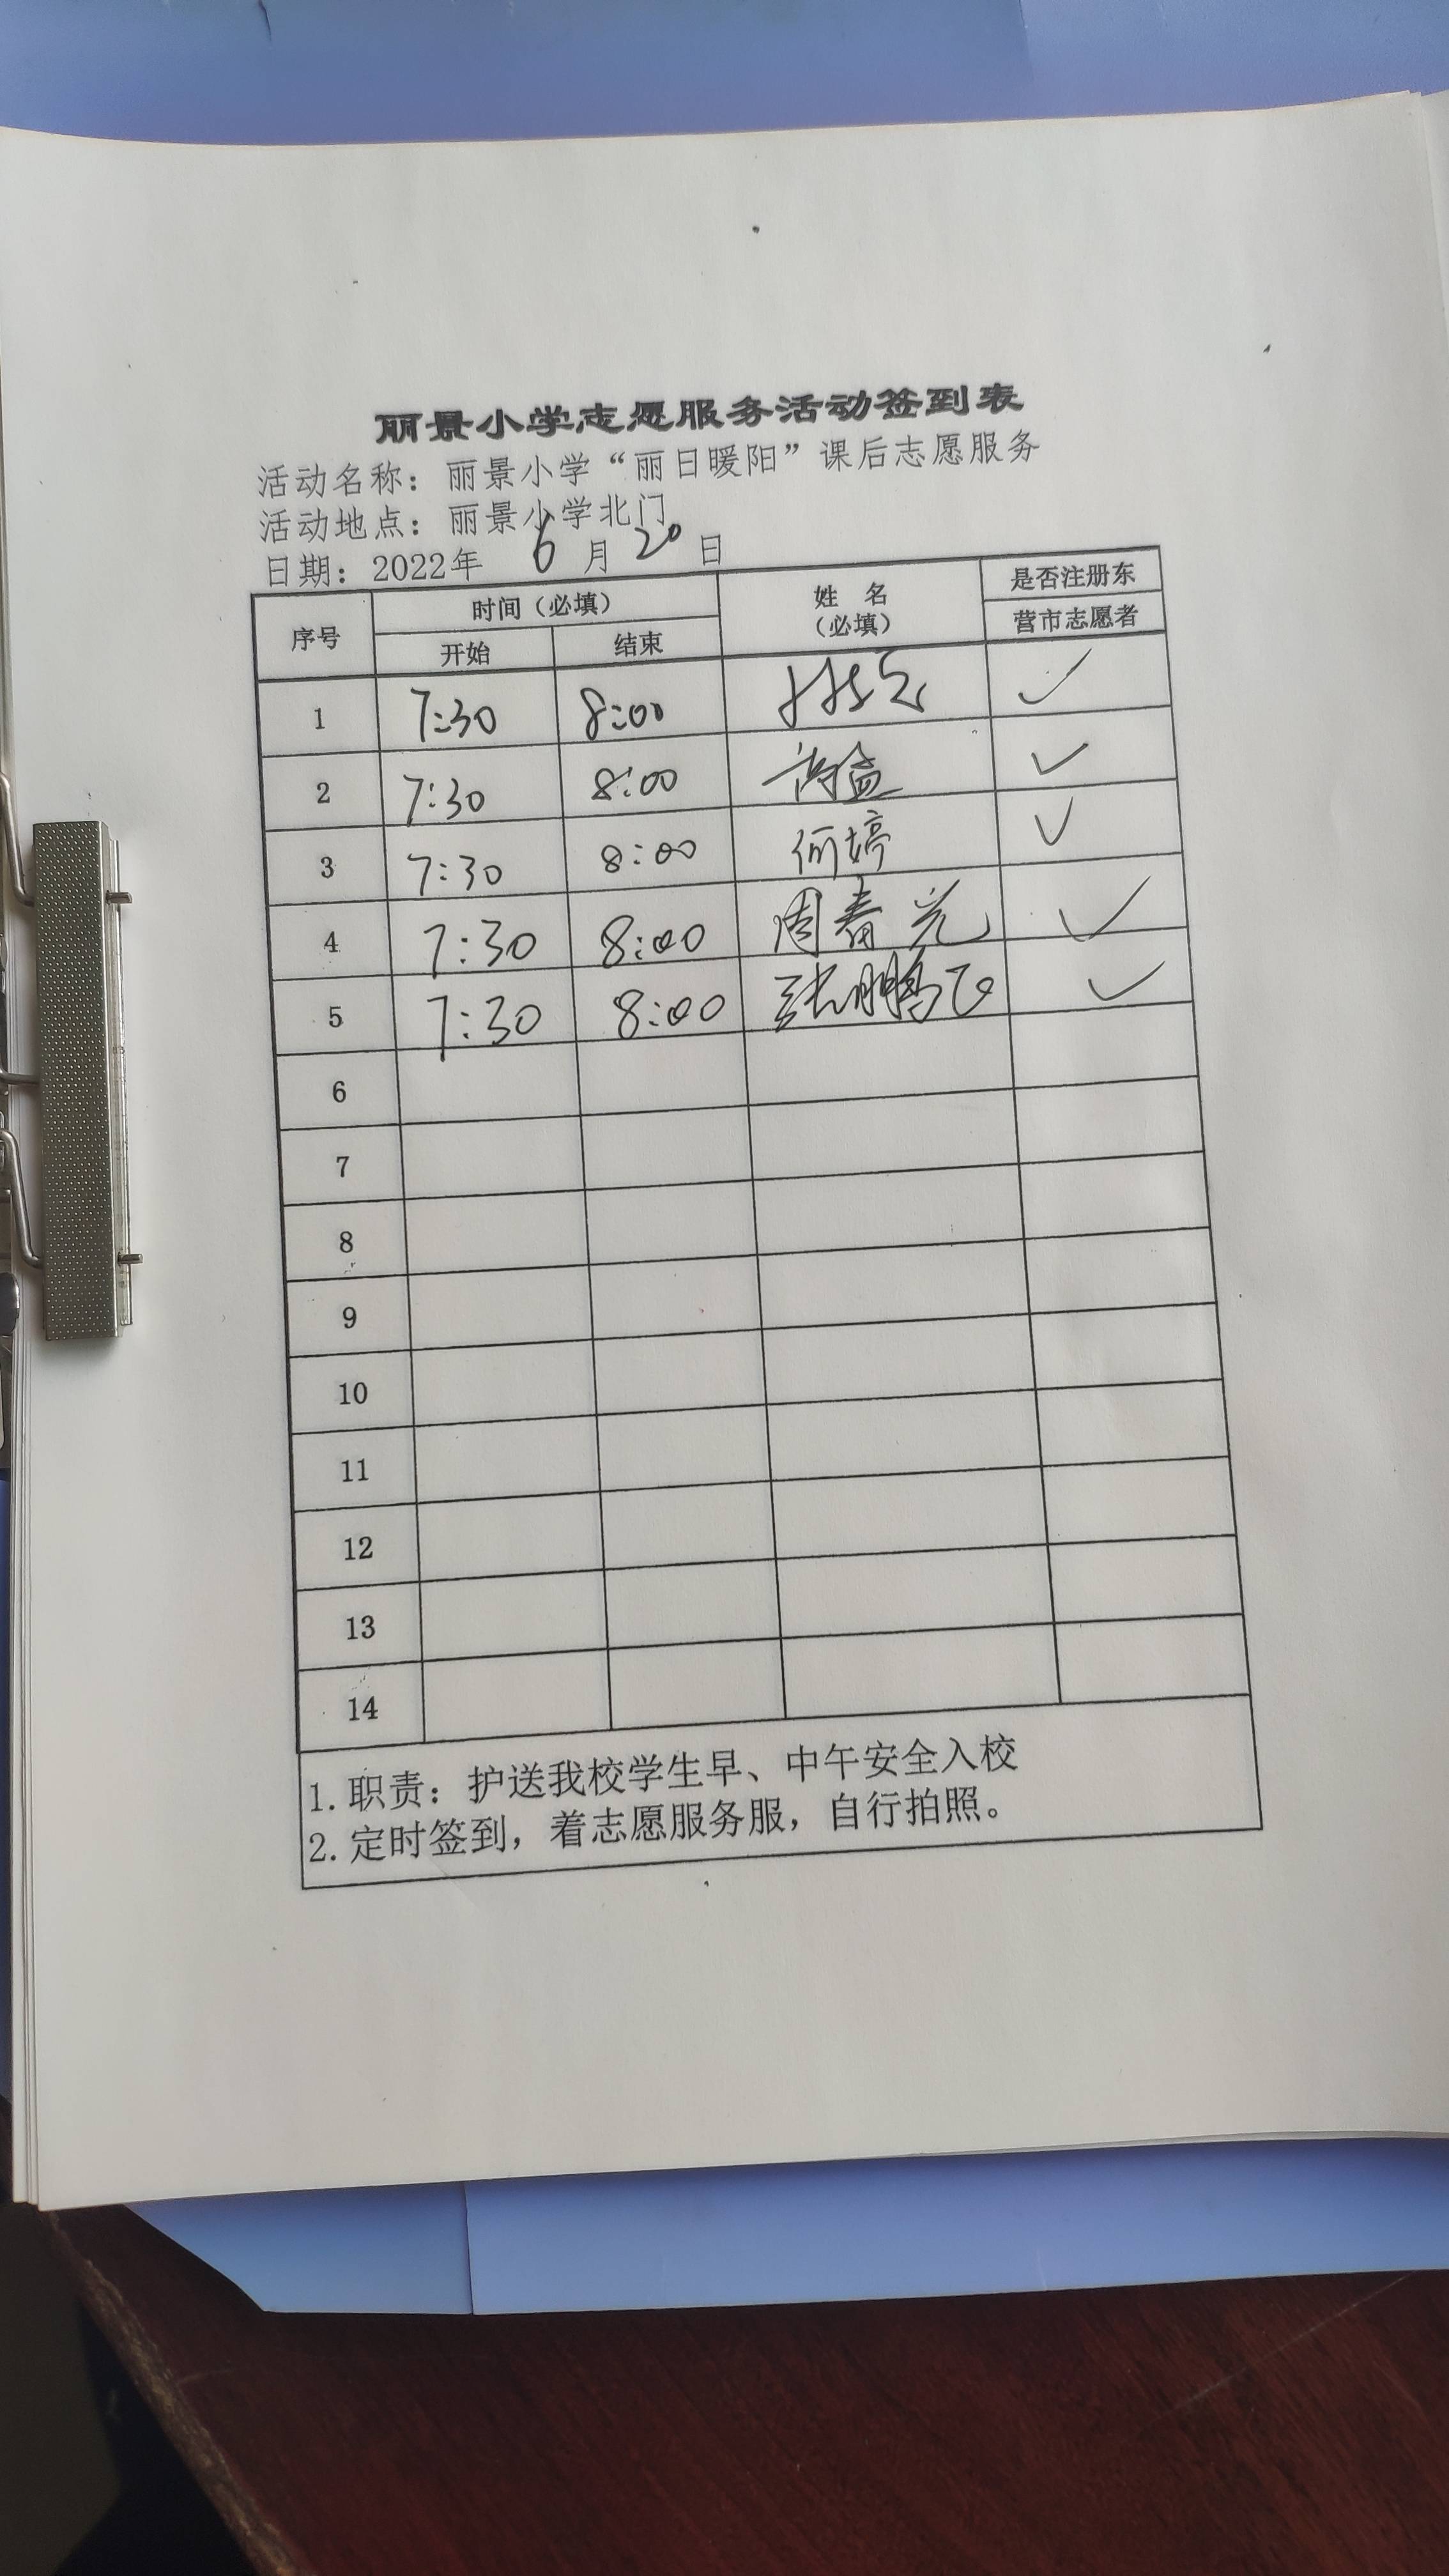 丽景小学志愿服务活动签到表
活动名称：丽景小学“丽日暖阳”课后志愿服务
活动地点：丽景小学北门
日期：2022年 6 月 20 日
序号 时间（必填） 姓 名 是否注册东
开始 结束 （必填） 营市志愿者
1 7:30 8:00 ✓
2 7:30 8:00 ✓
3 7:30 8:00 何婷 ✓
4 7:30 8:00 周春光 ✓
5 7:30 8:00 张鹏飞 ✓
6
7
8
9
10
11
12
13
14
1.职责：护送我校学生早、中午安全入校
2.定时签到，着志愿服务服，自行拍照。